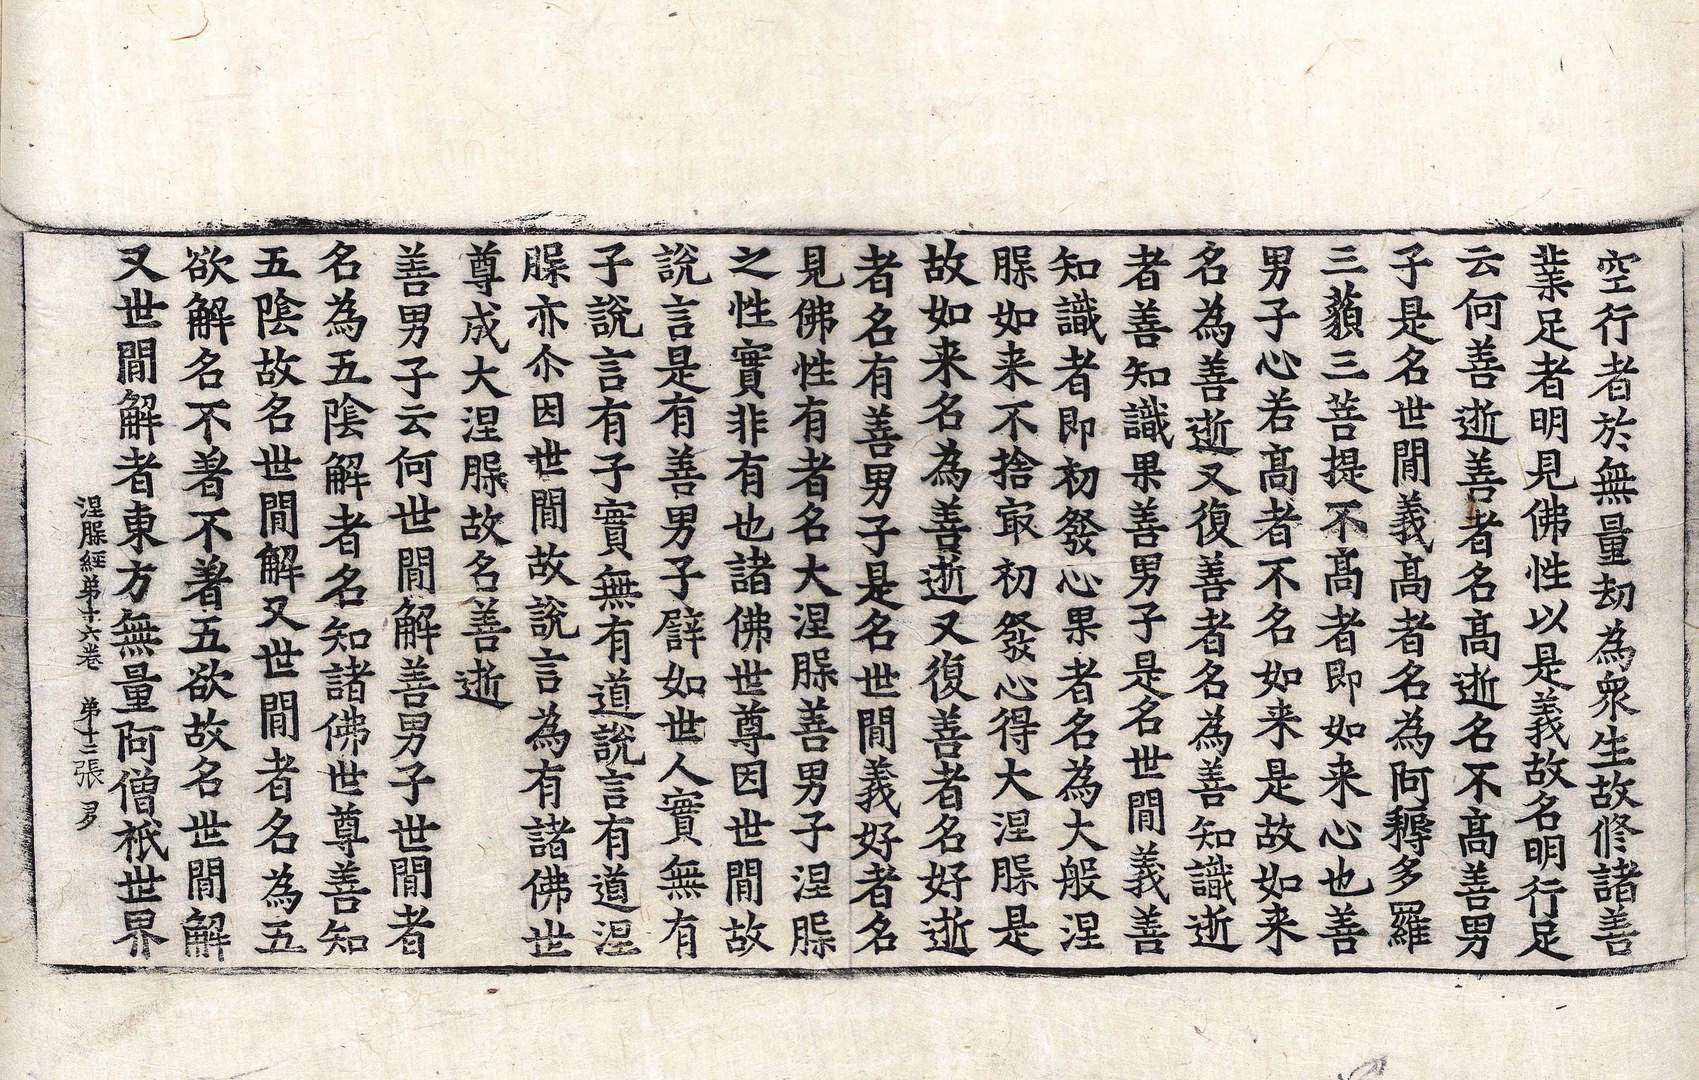 空行者於無量劫為衆生故修諸善
業足者明見佛性以是義故名明行足
云何善逝善者名髙逝名不髙善男
子是名世閒義髙者名為阿耨多羅
三藐三菩提不髙者即如来心也善
男子心若髙者不名如来是故如来
名為善逝又復善者名為善知識逝
者善知識果善男子是名世閒義善
知識者即初發心果者名為大般涅
槃如来不捨冣初發心得大涅槃是
故如来名為善逝又復善者名好逝
者名有善男子是名世閒義好者名
見佛性有者名大涅槃善男子涅槃
之性實非有也諸佛世尊因世閒故
說言是有善男子譬如世人實無有
子說言有子實無有道說言有道涅
槃亦尒因世閒故說言為有諸佛世
尊成大涅槃故名善逝
善男子云何世閒解善男子世閒者
名為五陰解者名知諸佛世尊善知
五陰故名世閒解又世閒者名為五
欲解名不著不著五欲故名世閒解
又世閒解者東方無量阿僧祇世界
涅槃經第十六卷 第十二張 多